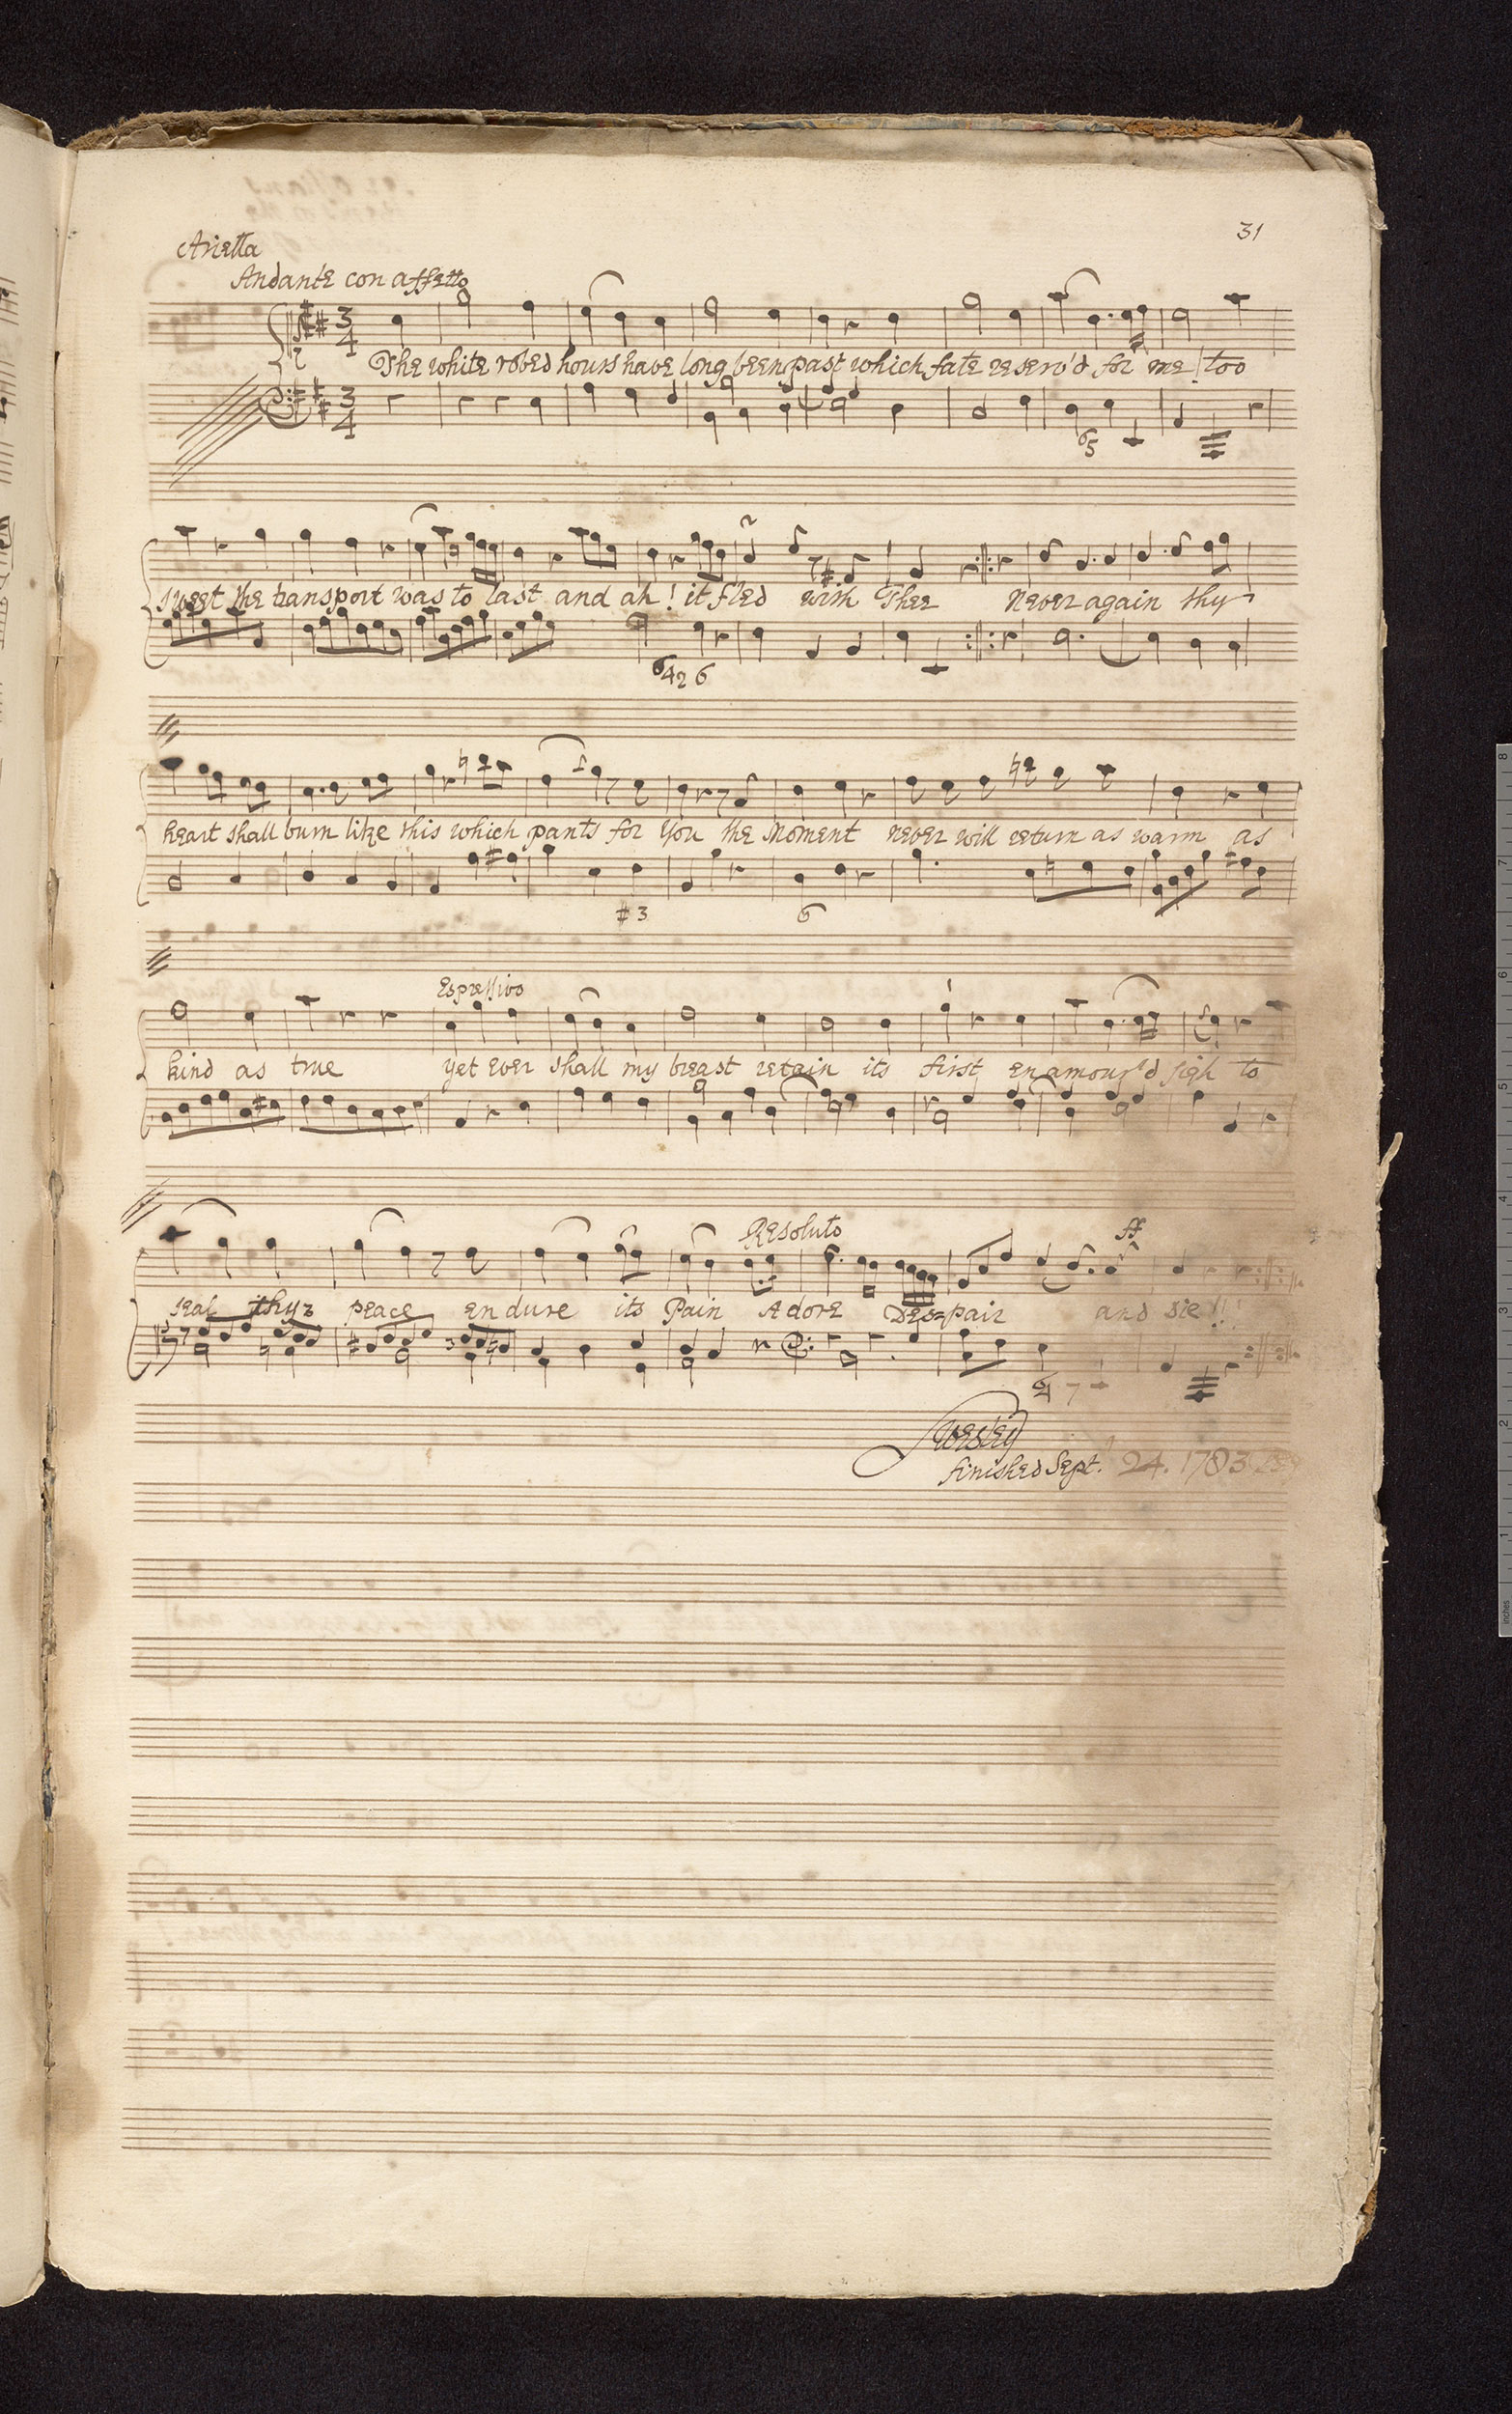 31
Arietta
Andante con affetto
3 4
The white robed hours have long been past which fate reserv'd for me! too
3 4
6 5
sweet the transport was to last and ah! it fled with Thee Never again thy
6 4 2 6
heart shall burn like this which pants for You the Moment never will return as warm as
# 3 6
Espressivo
kind as true yet ever shall my breast retain its first enamour'd sigh to
Resoluto ff
seal thy peace endure its Pain Adore Despair and die!!!
7
SWesley
finished Sept. 24. 1783